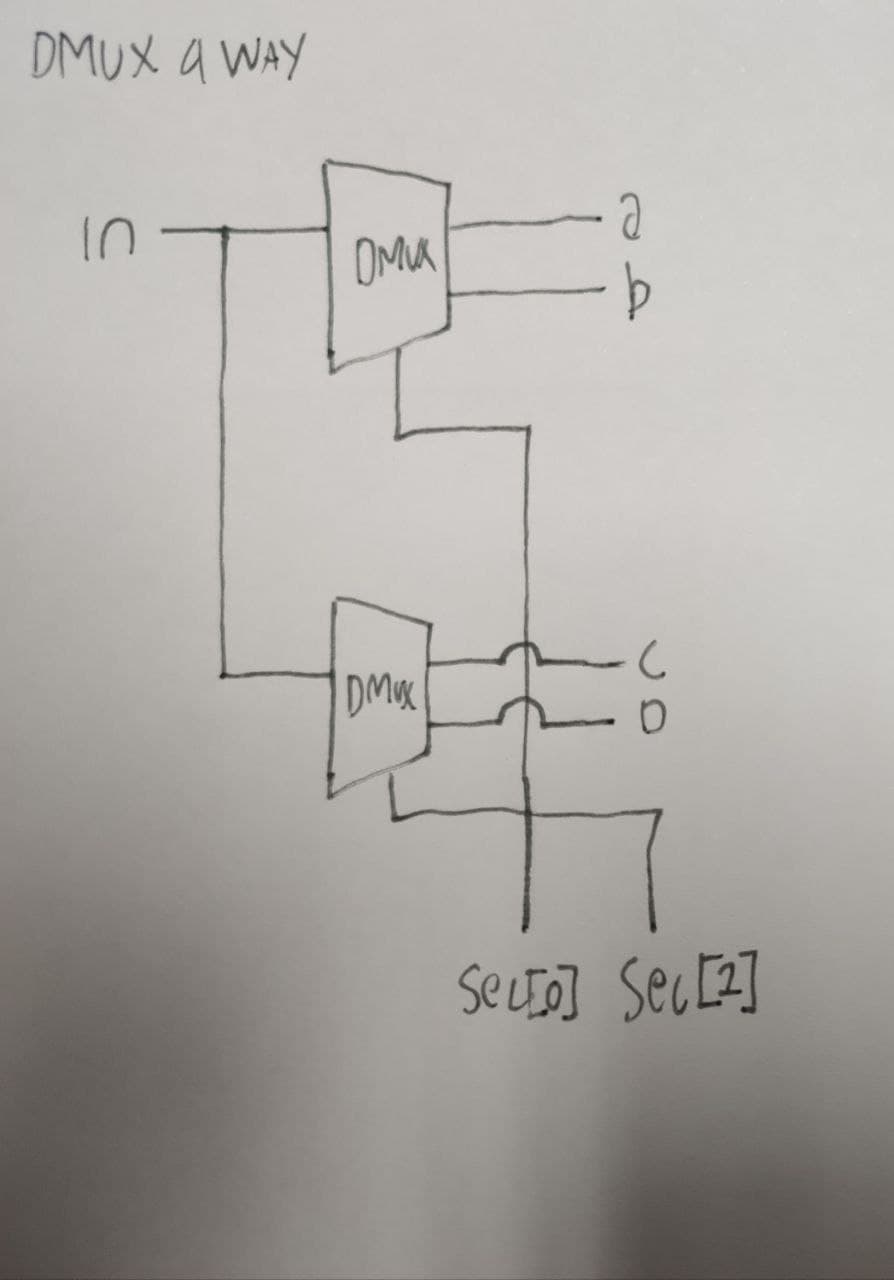 DMUX 4 WAY
In
DMUX
a
b
DMUX
C
D
Sel[0] Sel[1]